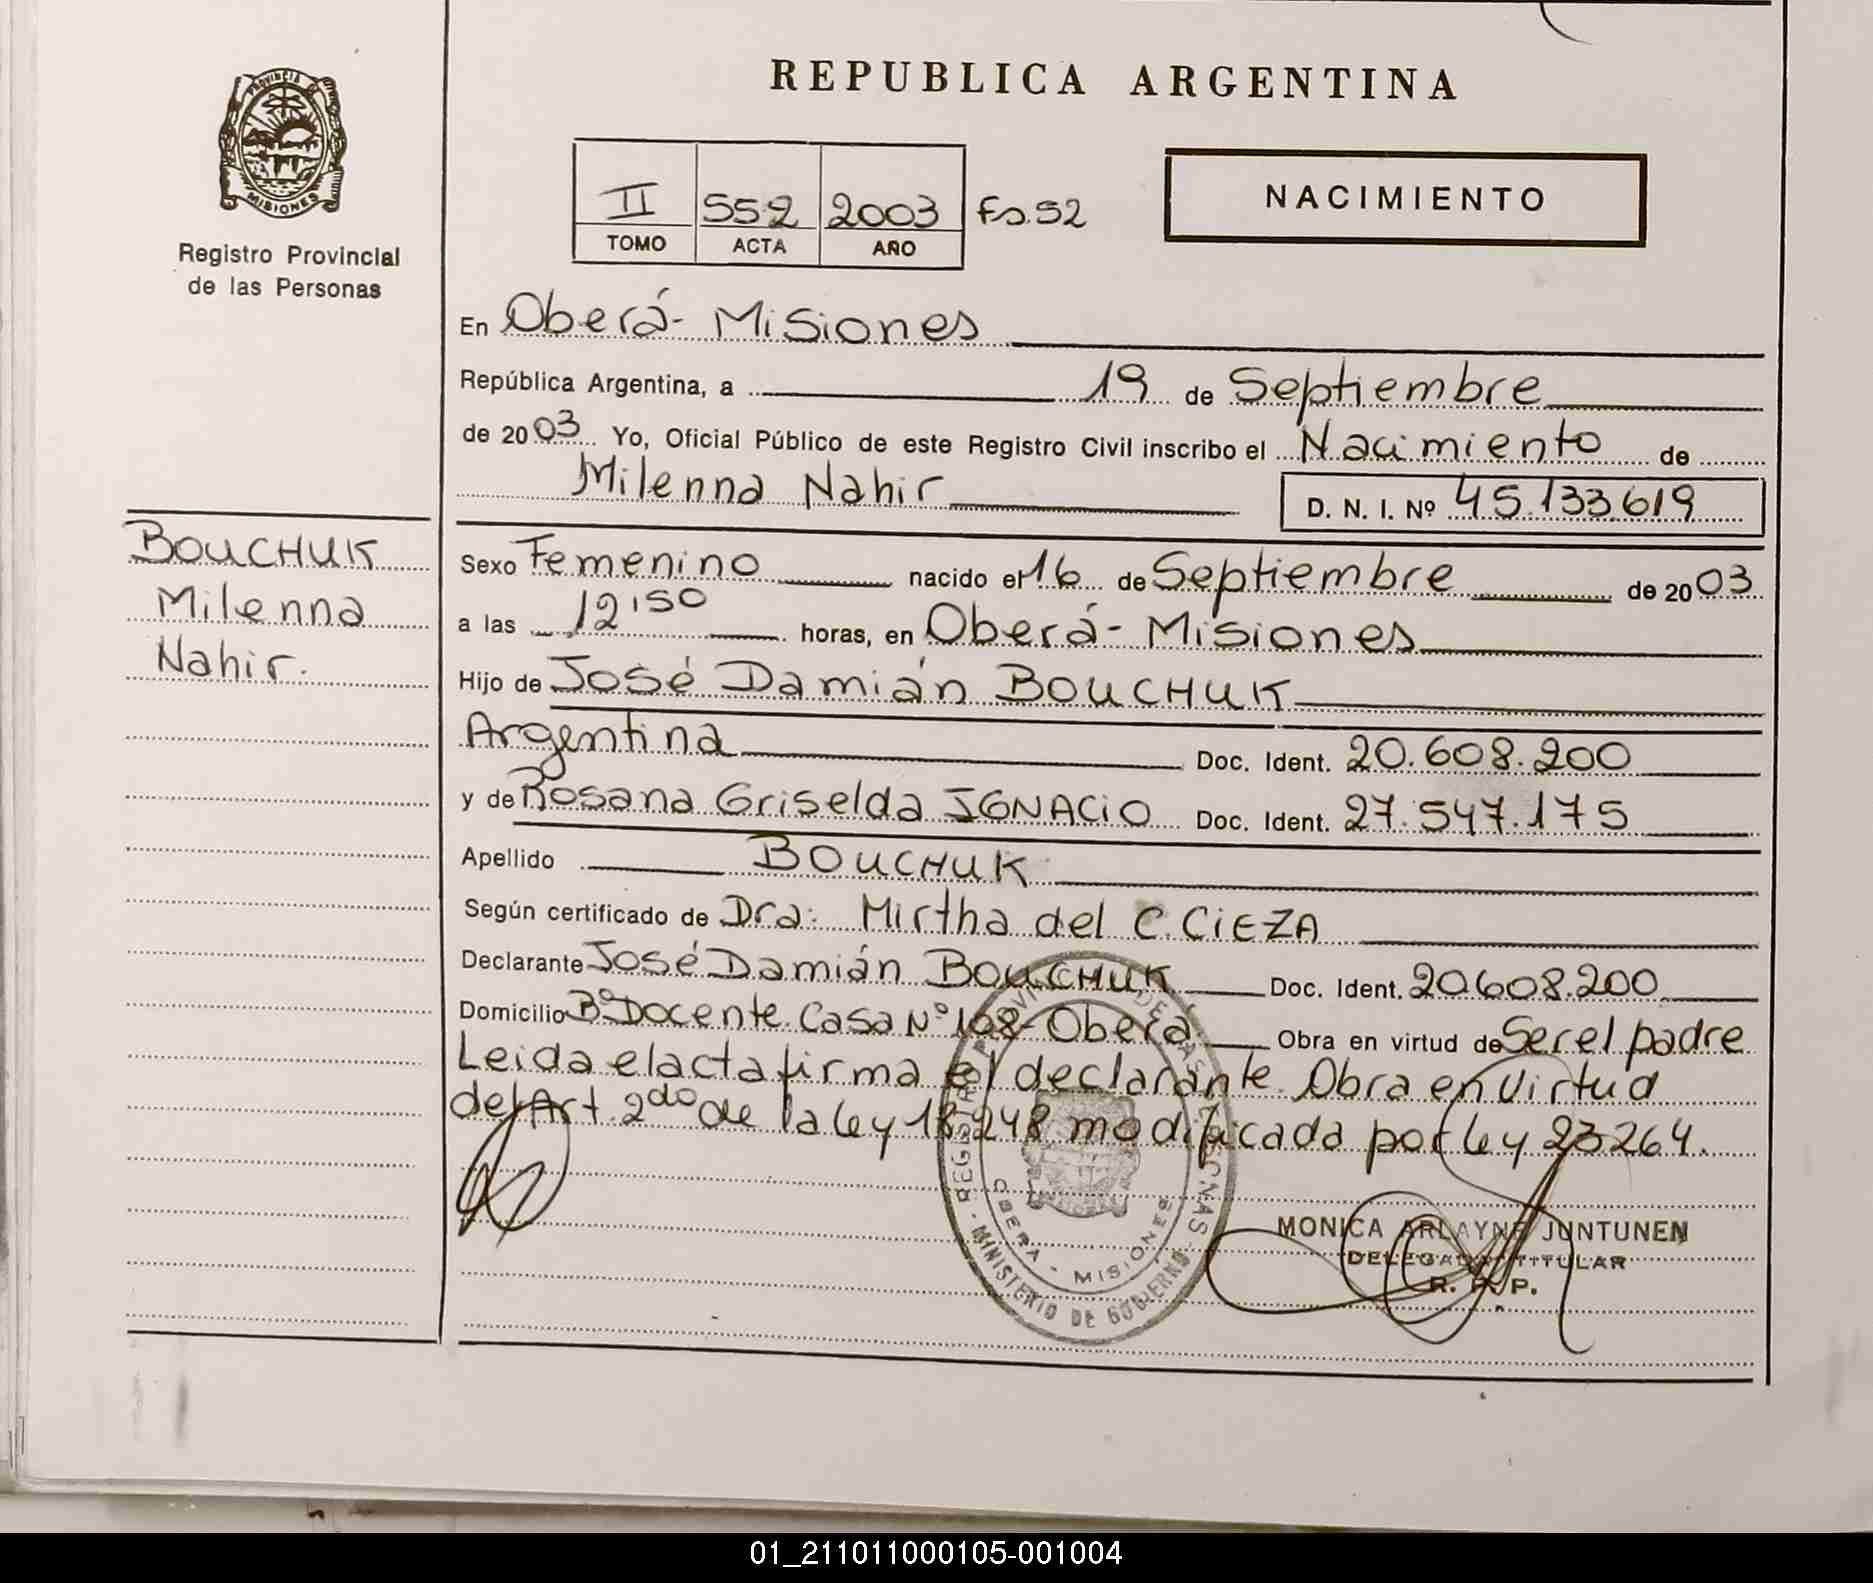 REPUBLICA ARGENTINA
PROVINCIA DE
MISIONES
Registro Provincial
de las Personas
II 552 2003 Fo. 52
TOMO ACTA AÑO
NACIMIENTO
En Oberá - Misiones
República Argentina, a 19 de Septiembre
de 2003 Yo, Oficial Público de este Registro Civil inscribo el Nacimiento de
Milenna Nahir D. N. I. Nº 45.133.619
BOUCHUK
Milenna
Nahir.
Sexo Femenino nacido el 16 de Septiembre de 2003
a las 12'50 horas, en Oberá - Misiones
Hijo de José Damián BOUCHUK
Argentina Doc. Ident. 20.608.200
y de Rosana Griselda IGNACIO Doc. Ident. 27.547.175
Apellido BOUCHUK
Según certificado de Dra: Mirtha del C. CIEZA
Declarante José Damián BOUCHUK Doc. Ident. 20.608.200
Domicilio Bº Docente Casa Nº 108 - Oberá Obra en virtud de Ser el padre
Leida el acta firma el declarante. Obra en virtud
del Art. 2do de la ley 18.248 modificada por ley 23264.
MINISTERIO DE GOBIERNO
OBERA - MISIONES
MONICA ARLAYNE JUNTUNEN
DELEGADA TITULAR
R. P. P.
01_211011000105-001004